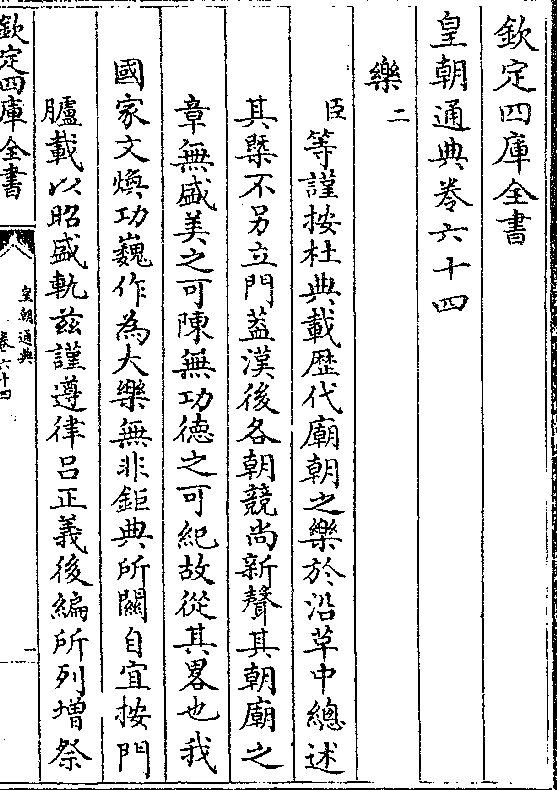 欽定四庫全書
皇朝通典卷六十四
樂二
臣等謹按杜典載歴代廟朝之樂於沿革中總述
其槩不另立門葢漢後各朝競尚新聲其朝廟之
章無盛美之可陳無功德之可紀故從其畧也我
國家文煥功巍作為大樂無非鉅典所關自宜按門
臚載以昭盛軌兹謹遵律呂正義後編所列增祭
欽定四庫全書
皇朝通典
卷六十四
一